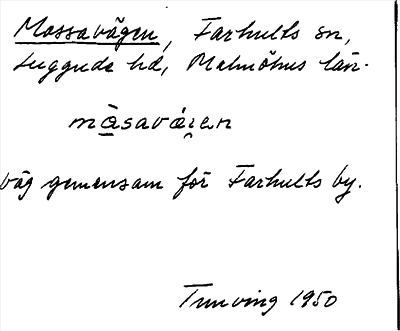 Mossavägen, Farhults sn,
Luggude hd, Malmöhus län.
màsavá̈ɪen
väg gemensam för Farhults by.
Tunving 1950